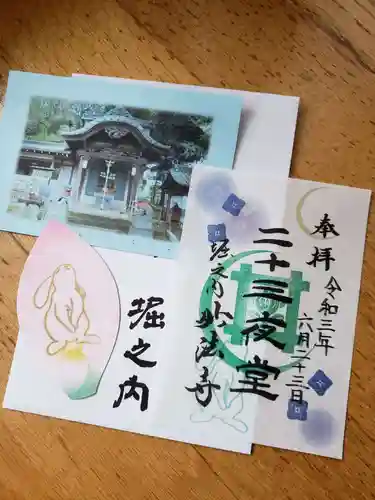 奉拝
令和三年
六月二十三日
二十三夜堂
堀之内妙法寺
堀之内